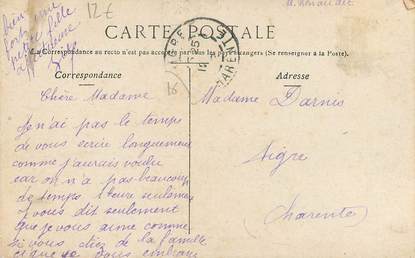 12€
CARTE POSTALE
La Correspondance au recto n'est pas acceptée par tous les pays étrangers (Se renseigner à la Poste).
Correspondance
Adresse
Chère Madame
Je n'ai pas le temps
de vous écrire longuement
comme j'aurais voulu
car on n'a pas beaucoup
de temps 1 heure seulement
je vous dit seulement
que je vous aime comme
si vous étiez de la famille
vous embrasse
Madame Darnis
Aigre
(Charente)
16